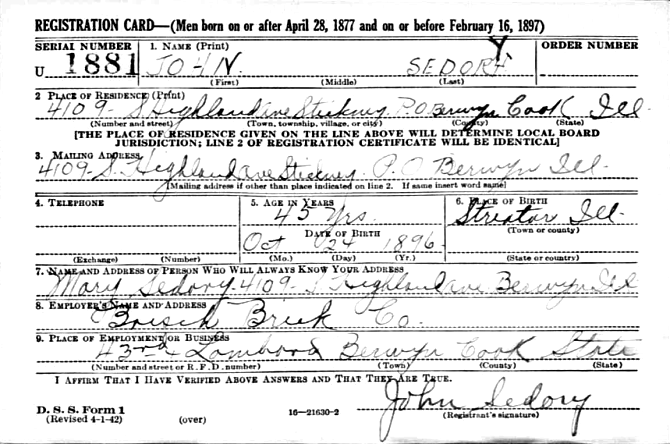 REGISTRATION CARD—(Men born on or after April 28, 1877 and on or before February 16, 1897)
SERIAL NUMBER
1. NAME (Print)
ORDER NUMBER
U 1881
JOHN SEDORY
(First) (Middle) (Last)
2 PLACE OF RESIDENCE (Print)
4109 - S Highland ave Stickney P.O Berwyn Cook Ill
(Number and street) (Town, township, village, or city) (County) (State)
[THE PLACE OF RESIDENCE GIVEN ON THE LINE ABOVE WILL DETERMINE LOCAL BOARD
JURISDICTION; LINE 2 OF REGISTRATION CERTIFICATE WILL BE IDENTICAL]
3. MAILING ADDRESS
4109 - S. Highland ave Stickney P.O Berwyn Ill.
[Mailing address if other than place indicated on line 2. If same insert word same]
4. TELEPHONE
5. AGE IN YEARS
6. PLACE OF BIRTH
45 Yrs.
Streator Ill.
DATE OF BIRTH
(Town or county)
Oct 24 1896
(Exchange) (Number)
(Mo.) (Day) (Yr.)
(State or country)
7. NAME AND ADDRESS OF PERSON WHO WILL ALWAYS KNOW YOUR ADDRESS
Mary Sedory 4109 - S Highland ave Berwyn Ill
8. EMPLOYER'S NAME AND ADDRESS
Brick Co.
9. PLACE OF EMPLOYMENT OR BUSINESS
43rd Lombard Berwyn Cook State
(Number and street or R. F. D. number) (Town) (County) (State)
I AFFIRM THAT I HAVE VERIFIED ABOVE ANSWERS AND THAT THEY ARE TRUE.
D. S. S. Form 1
(Revised 4-1-42) (over)
16—21630-2
John Sedory
(Registrant's signature)